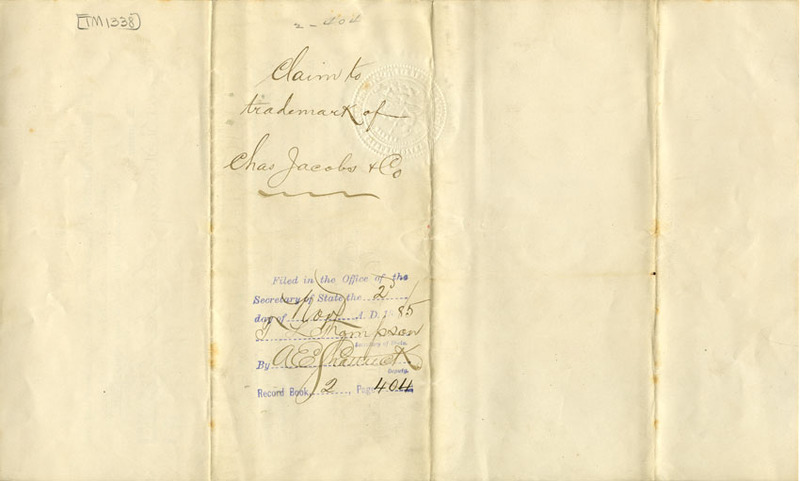 TM1338
2-404
Claim to
trademark of
Chas Jacobs & Co
Filed in the Office of the
Secretary of State the 2
day of Nov A.D. 1885
Thompson
Secretary of State.
By A E
Deputy.
Record Book 2, Page 404